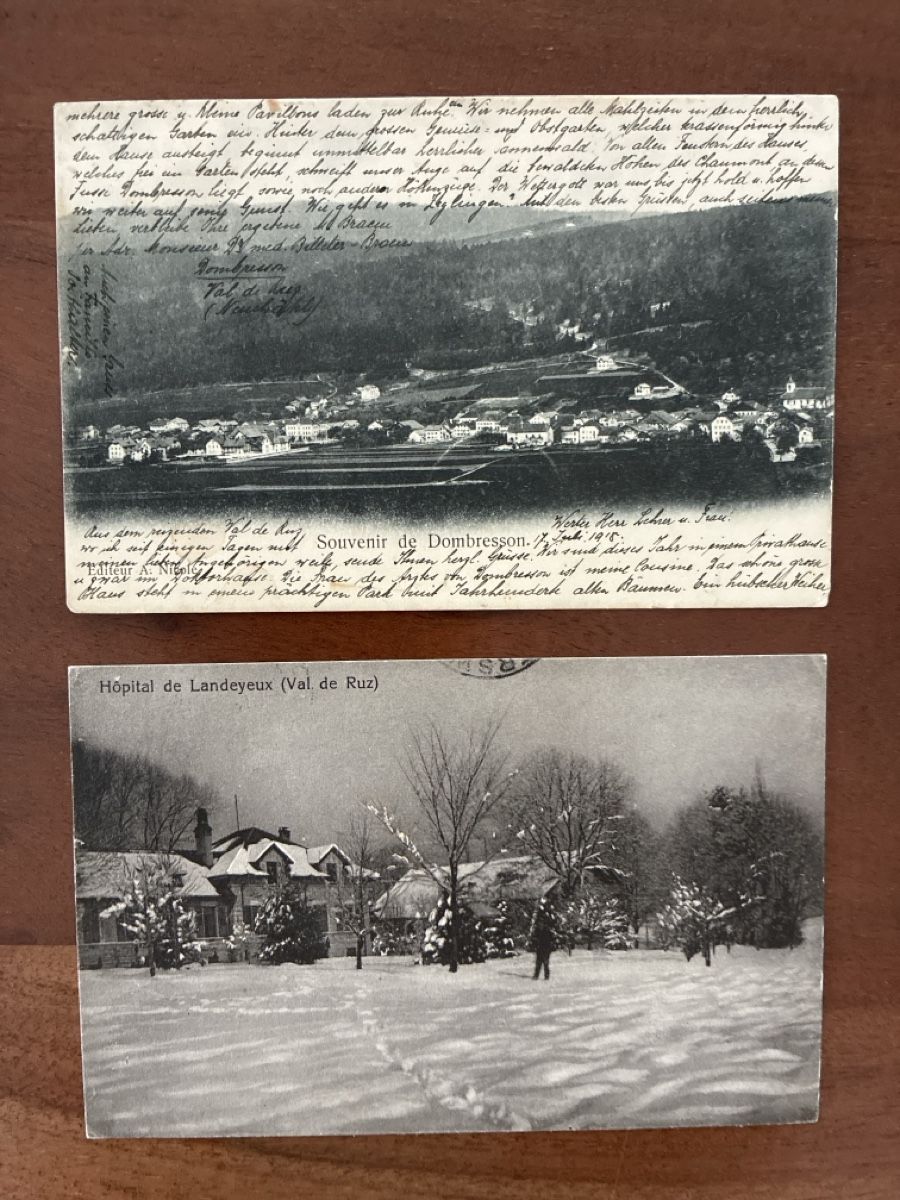 mehrere grosse u. kleine Pavillons laden zur Ruhe ein. Wir nehmen alle Mahlzeiten in dem herrlich
schattigen Garten ein. Hinter dem grossen Gemüse- und Obstgarten, welcher terrassenförmig hinter
dem Hause ansteigt, beginnt unmittelbar herrlicher Tannenwald. Von allen Fenstern des Hauses,
welches frei im Garten steht, schweift unser Auge auf die bewaldeten Höhen des Chaumont an dem
Fusse Dombresson liegt, sowie noch andere Höhenzüge. Der Wettergott war uns bis jetzt hold u. hoffen
wir weiter auf seine Gunst. Wie geht es in Mit den besten Grüssen, auch seitens meiner
Lieben, verbleibe Ihre ergebene M. Braem
per Adr. Monsieur Dr. med. Billeter-Braem
Dombresson
Val de Ruz
(Neuchâtel)
an Familie
Souvenir de Dombresson.
Editeur A. Nicole
Werter Herr Lehrer u. Frau!
17. Juli 1918.
Aus dem reizenden Val de Ruz
wo ich seit einigen Tagen mit
meinen lieben Angehörigen weile, sende Ihnen herzl. Grüsse. Wir sind dieses Jahr in einem Privathause
u zwar im Doktorhause. Die Frau des Arztes von Dombresson ist meine Cousine. Das schöne grosse
Haus steht in einem prächtigen Park mit Jahrhunderte alten Bäumen. Ein hübscher Weiher
Hôpital de Landeyeux (Val. de Ruz)